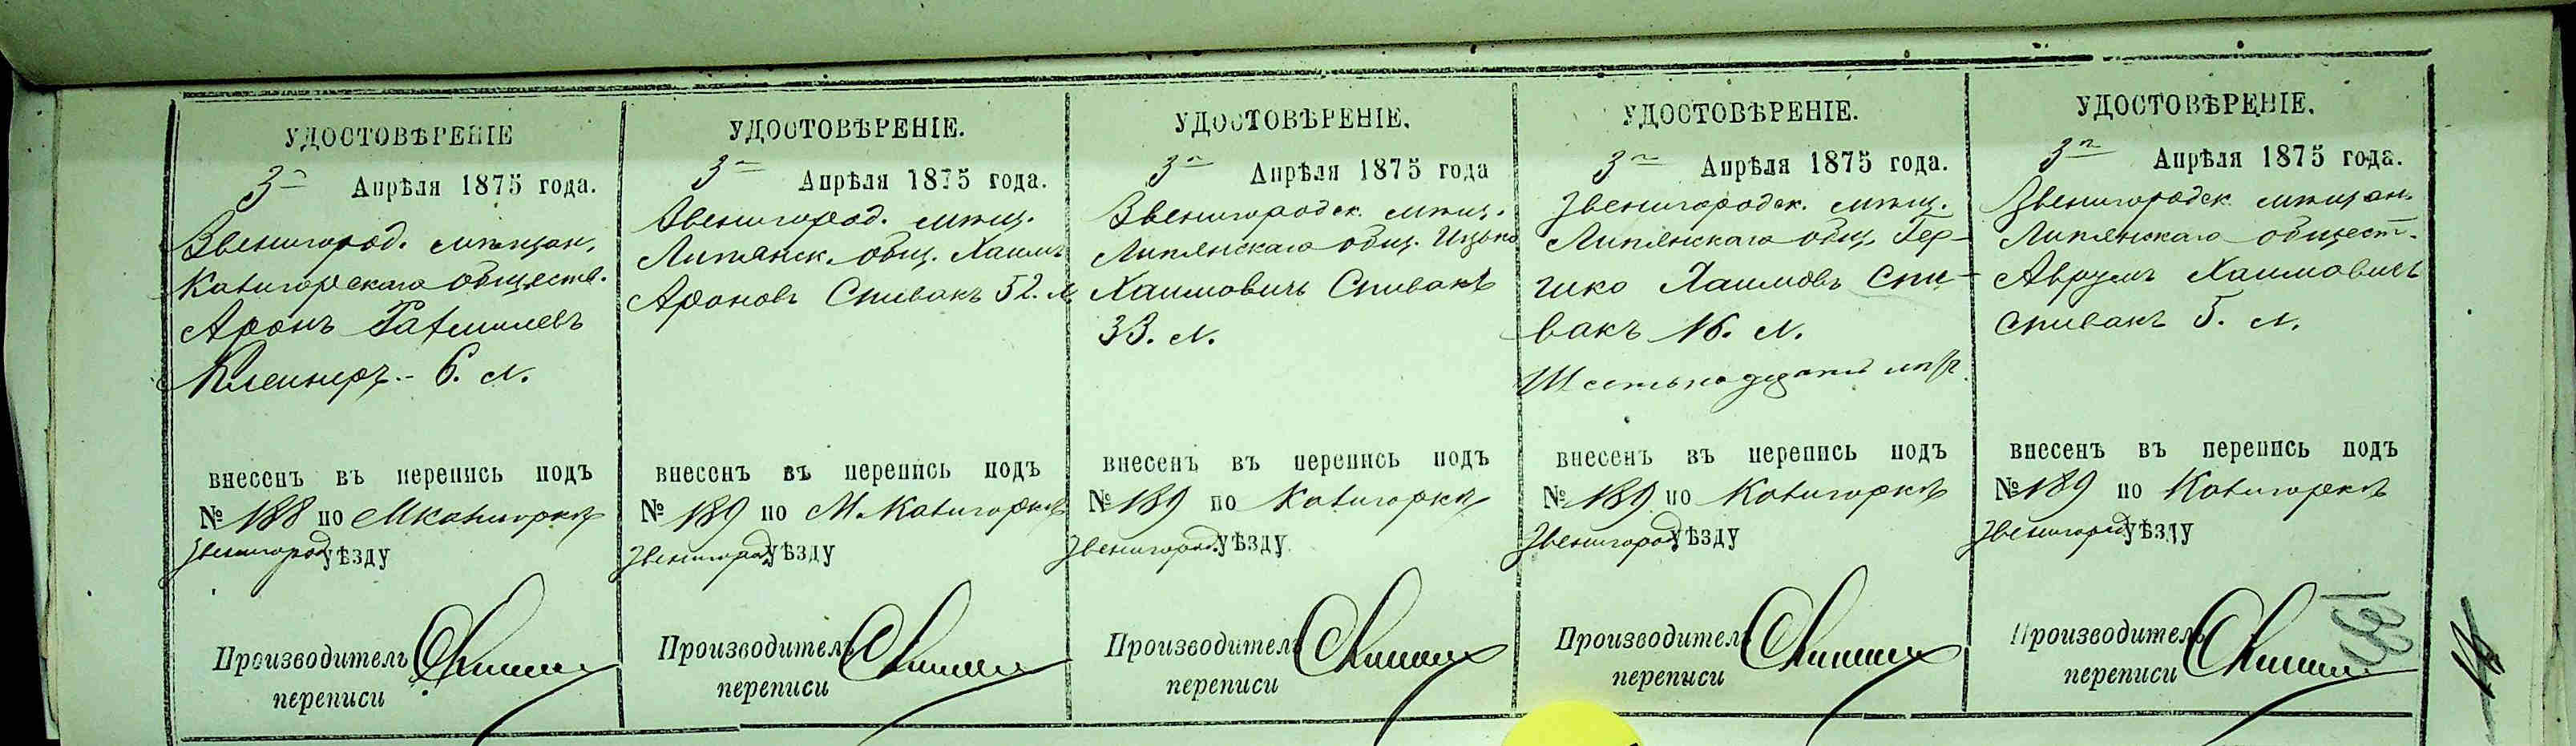 УДОСТОВѢРЕНІЕ
3го Апрѣля 1875 года.
Звенигород. мѣщан.
Катигорскаго обществ.
Аронъ
Клейнеръ 6. л.
внесенъ въ перепись подъ
№ 188 по М Катигоркѣ
Звенигород уѣзду
Производитель
переписи
УДОСТОВѢРЕНІЕ.
3го Апрѣля 1875 года.
Звенигород. мѣщ.
Липянск. общ. Хаимъ
Ароновъ Спивакъ 52. л.
внесенъ въ перепись подъ
№ 189 по М. Катигоркѣ
Звенигород. уѣзду
Производитель
переписи
УДОСТОВѢРЕНІЕ.
3го Апрѣля 1875 года
Звенигородск. мѣщ.
Липянскаго общ. Ицько
Хаимовичъ Спивакъ
33. л.
внесенъ въ перепись подъ
№ 189 по Катигоркѣ
Звенигород. уѣзду
Производитель
переписи
УДОСТОВѢРЕНІЕ.
3го Апрѣля 1875 года.
Звенигородск. мѣщ.
Липянскаго общ. Гер-
шко Хаимовъ Спи-
вакъ 16. л.
Шестьнадцать лѣтъ.
внесенъ въ перепись подъ
№ 189 по Катигоркѣ
Звенигород уѣзду
Производитель
переписи
УДОСТОВѢРЕНІЕ.
3го Апрѣля 1875 года.
Звенигородск мѣщан.
Липянскаго общест.
Аврумъ Хаимовичъ
Спивакъ 5. л.
внесенъ въ перепись подъ
№ 189 по Катигоркѣ
Звенигород уѣзду
Производитель
переписи